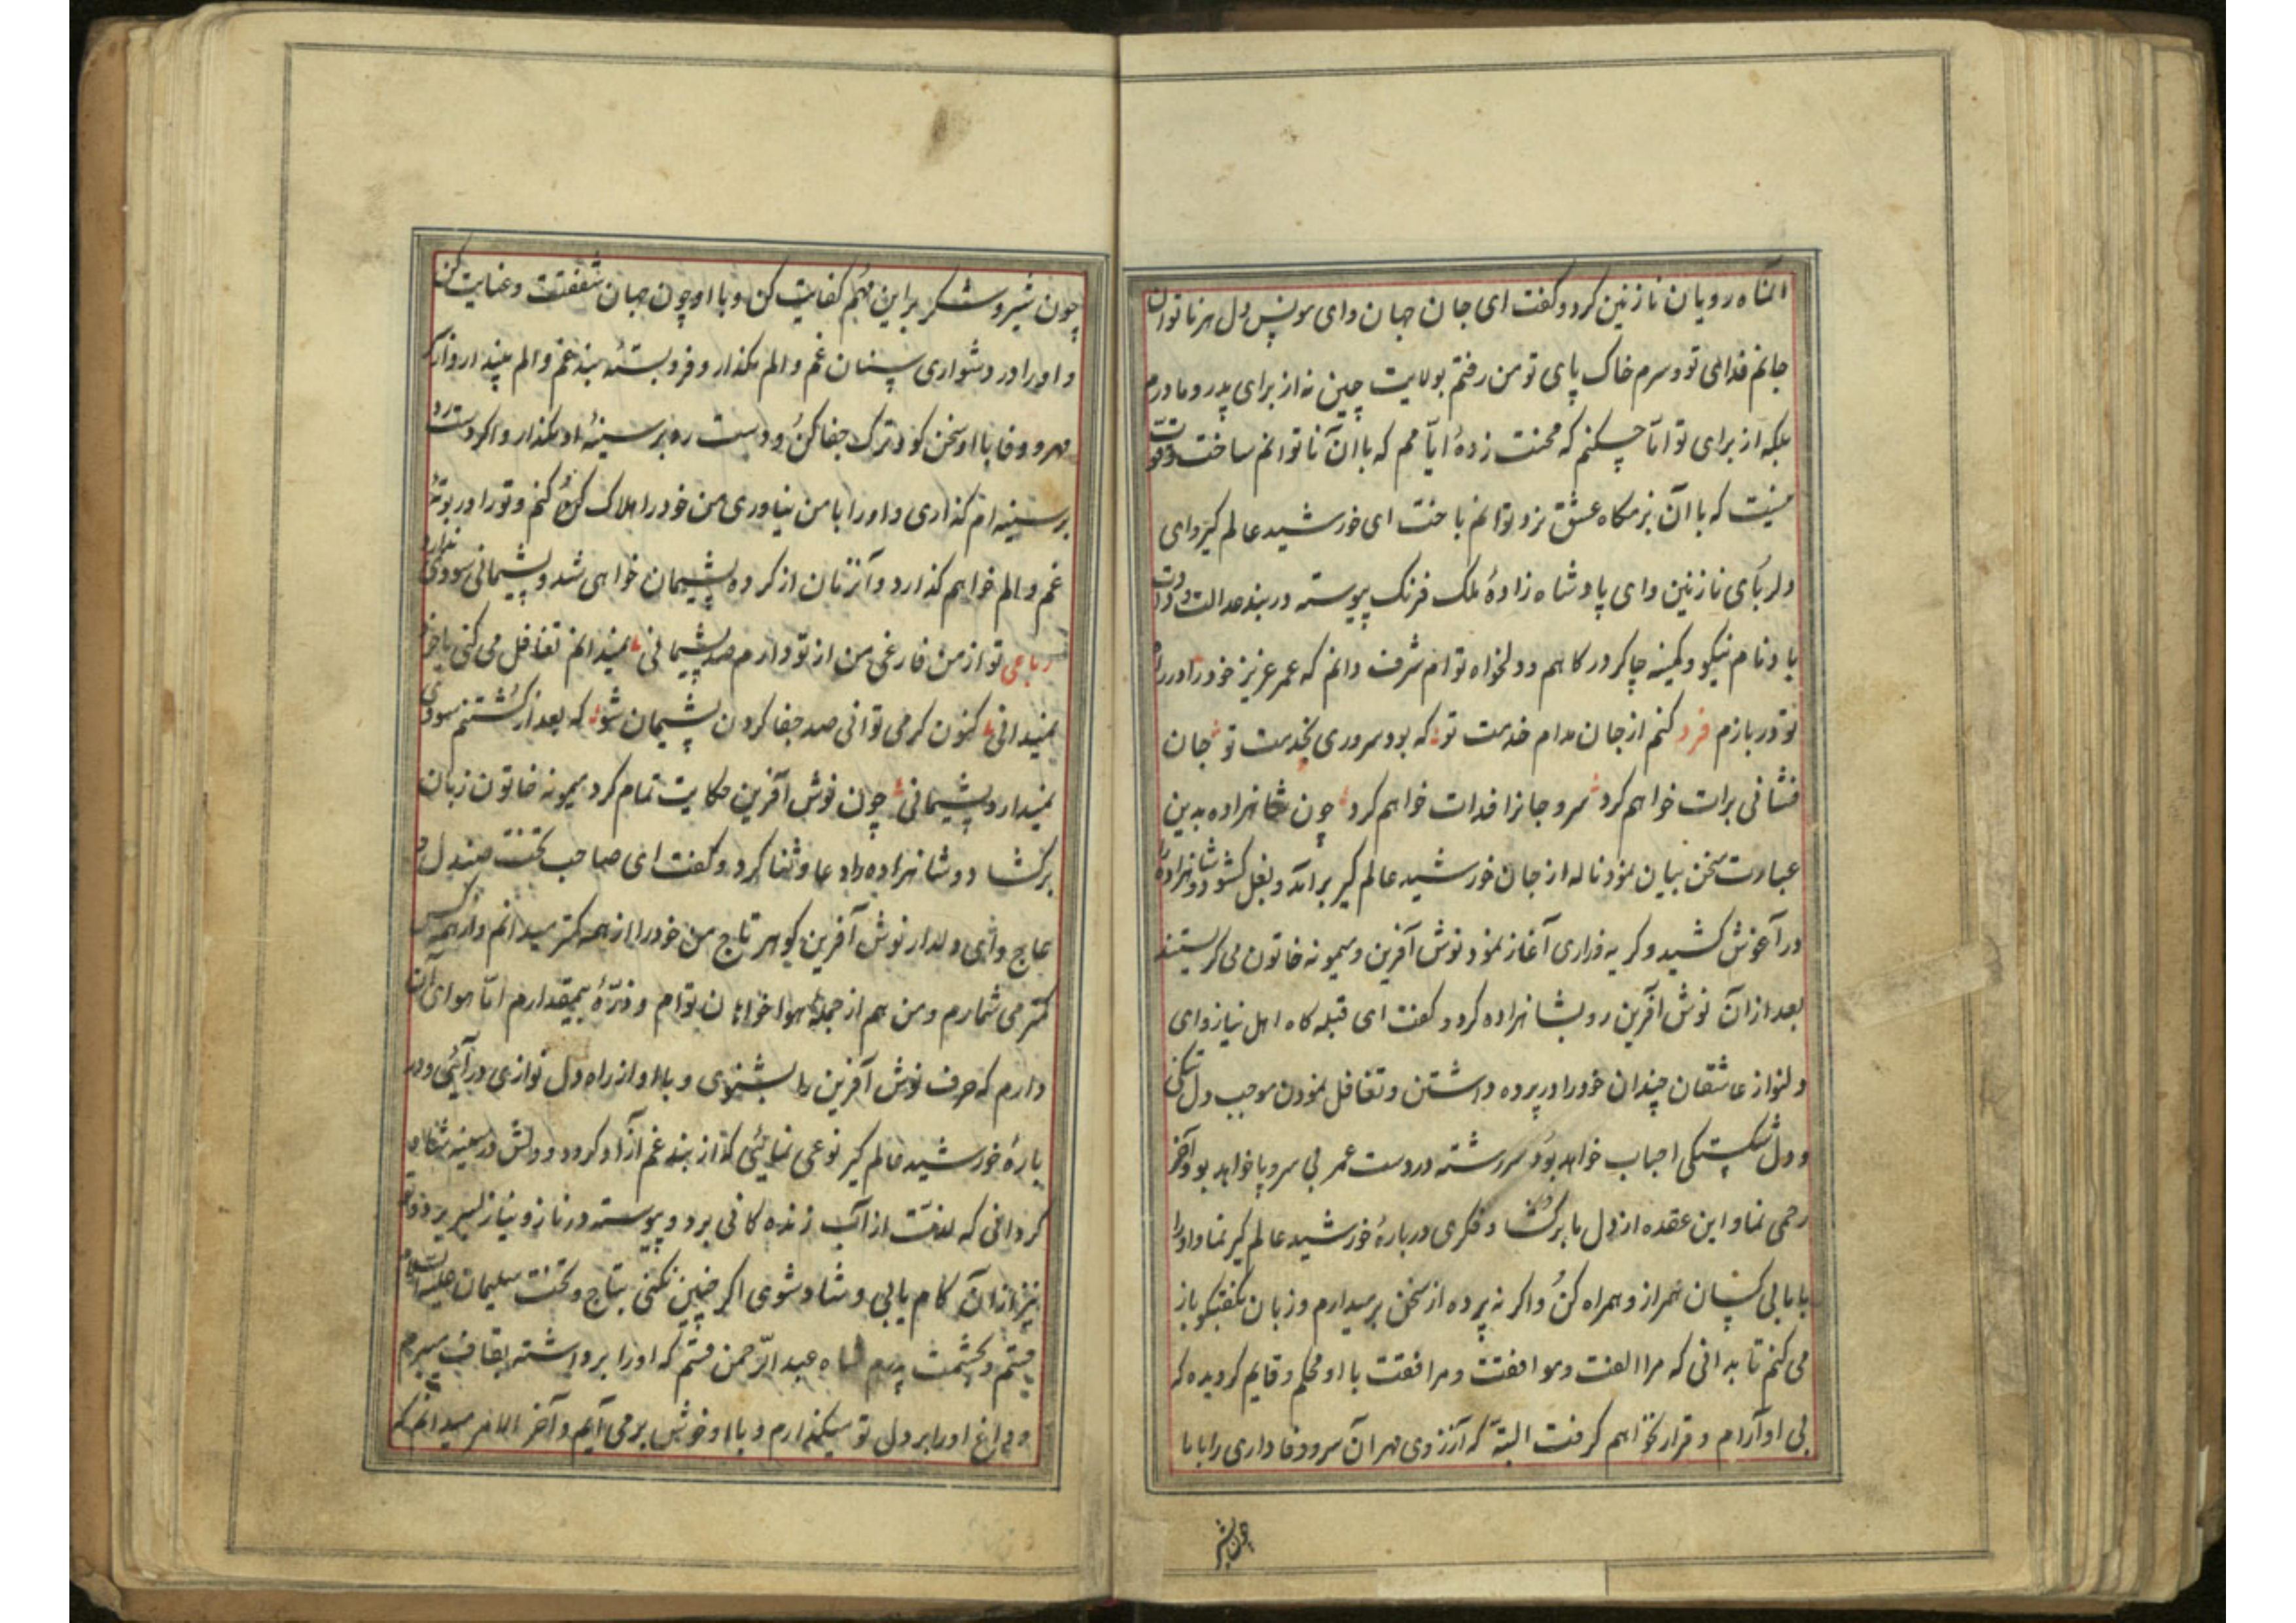 آنماه رویان نازنین کرد و گفت ای جان جهان و ای مونس دل هر ناتوان
جانم فدای تو و سرم خاک پای تو من رفتم بولایت چین نه از برای پدر و مادرم
بلکه از برای تو اما چکنم که محنت زدهٔ ایامم که با آن ناتوانم ساخت و قوت
نیست که با آن بزمگاه عشق نرد توانم باخت ای خورشید عالم گیر و ای
دلربای نازنین و ای پادشاه زادهٔ ملک فرنک پیوسته در بند عدالت و داد
باد نام نیکو و کمینه چاکر درگاهم و دلخواه توام شرف دانم که عمر عزیز خود را در راه
تو در بازم فرد کنم از جان مدام خدمت تو که بود سروری بخدمت تو جان
فشانی برات خواهم کرد سر و جانرا فدات خواهم کرد چون شاهزاده بدین
عبارت سخن بیان نمود ناله از جان خورشید عالم گیر برآمد و بغل کشود و شاهزاده را
در آغوش کشید و کریه و زاری آغاز نمود نوش آفرین و میمونه خاتون می کریستند
بعد از آن نوش آفرین رو بشاهزاده کرد و گفت ای قبله کاه اهل نیاز و ای
دلنواز عاشقان چندان خود را در پرده داشتن و تغافل نمودن موجب دل تنگی
و دل شکستگی احباب خواهد بود سر رشته در دست عمر بی سر و پا خواهد بود آخر
رحمی نما و این عقده از دل ما برگشا و فکری در بارهٔ خورشید عالم گیر نما و او را
با ما بی کسان همراز و همراه کن و اگر نه پرده از سخن بر میدارم و زبان بگفتگو باز
می کنم تا بدانی که مرا الفت و موافقت و مرافقت با او محکم و قایم گردیده که
بی او آرام و قرار نخواهم گرفت البته که آرزوی مهر آن سرو وفاداری را با ما
چون شیر
چون شیر و شکر بر این مهم کفایت کن و با او چون جهان شفقت و عنایت کن
و او را در دشواری سنان غم و الم مگذار و فرو بستهٔ بند غم و الم مپندار و از
مهر و وفا با او سخن گو و ترک جفا کن و دست رد بر سینهٔ او مگذار و اگر دست رد
بر سینه ام گذاری و او را با من نیاوری من خود را هلاک کنم و تو را در بوتهٔ
غم و الم خواهم گذارد و آنزمان از کرده پشیمان خواهی شد و پشیمانی سودی ندارد
رباعی تو از من فارغی من از تو دارم صد پشیمانی نمیدانم تغافل می کنی یا خود
نمیدانی کنون کر می توانی صد جفا کردن پشیمان شو که بعد از کشتنم سودی
نمیدارد پشیمانی چون نوش آفرین حکایت تمام کرد میمونه خاتون زبان
برگشاد و شاهزاده را دعا و ثنا کرد و گفت ای صاحب تخت صندل و
عاج و ای دلدار نوش آفرین گوهر تاج من خود را از همه کمتر میدانم و از همه کس
کمتر می شمارم و من هم از جملهٔ هواخواهان توام و ذرهٔ بیمقدارم اما هوای آن
دارم که حرف نوش آفرین را بشنوی و با او از راه دل نوازی در آئی و در
بارهٔ خورشید عالم گیر نوعی نمائی که از بند غم آزاد گردد و دلش در سینه شاد
گردانی که لذت از آب زندگانی برد و پیوسته در ناز و نیاز بسر برد و تو
نیز از آن کام یابی و شاد شوی اگر چنین نکنی بتاج و تخت سلیمان علیه السلام
قسم و بحشمت پدرم شاه عبد الرحمن قسم که او را برداشته بقاف میبرم
و داغ او را بر دل تو میگذارم و با او خوش بر می آیم و آخر الامر میدانم که